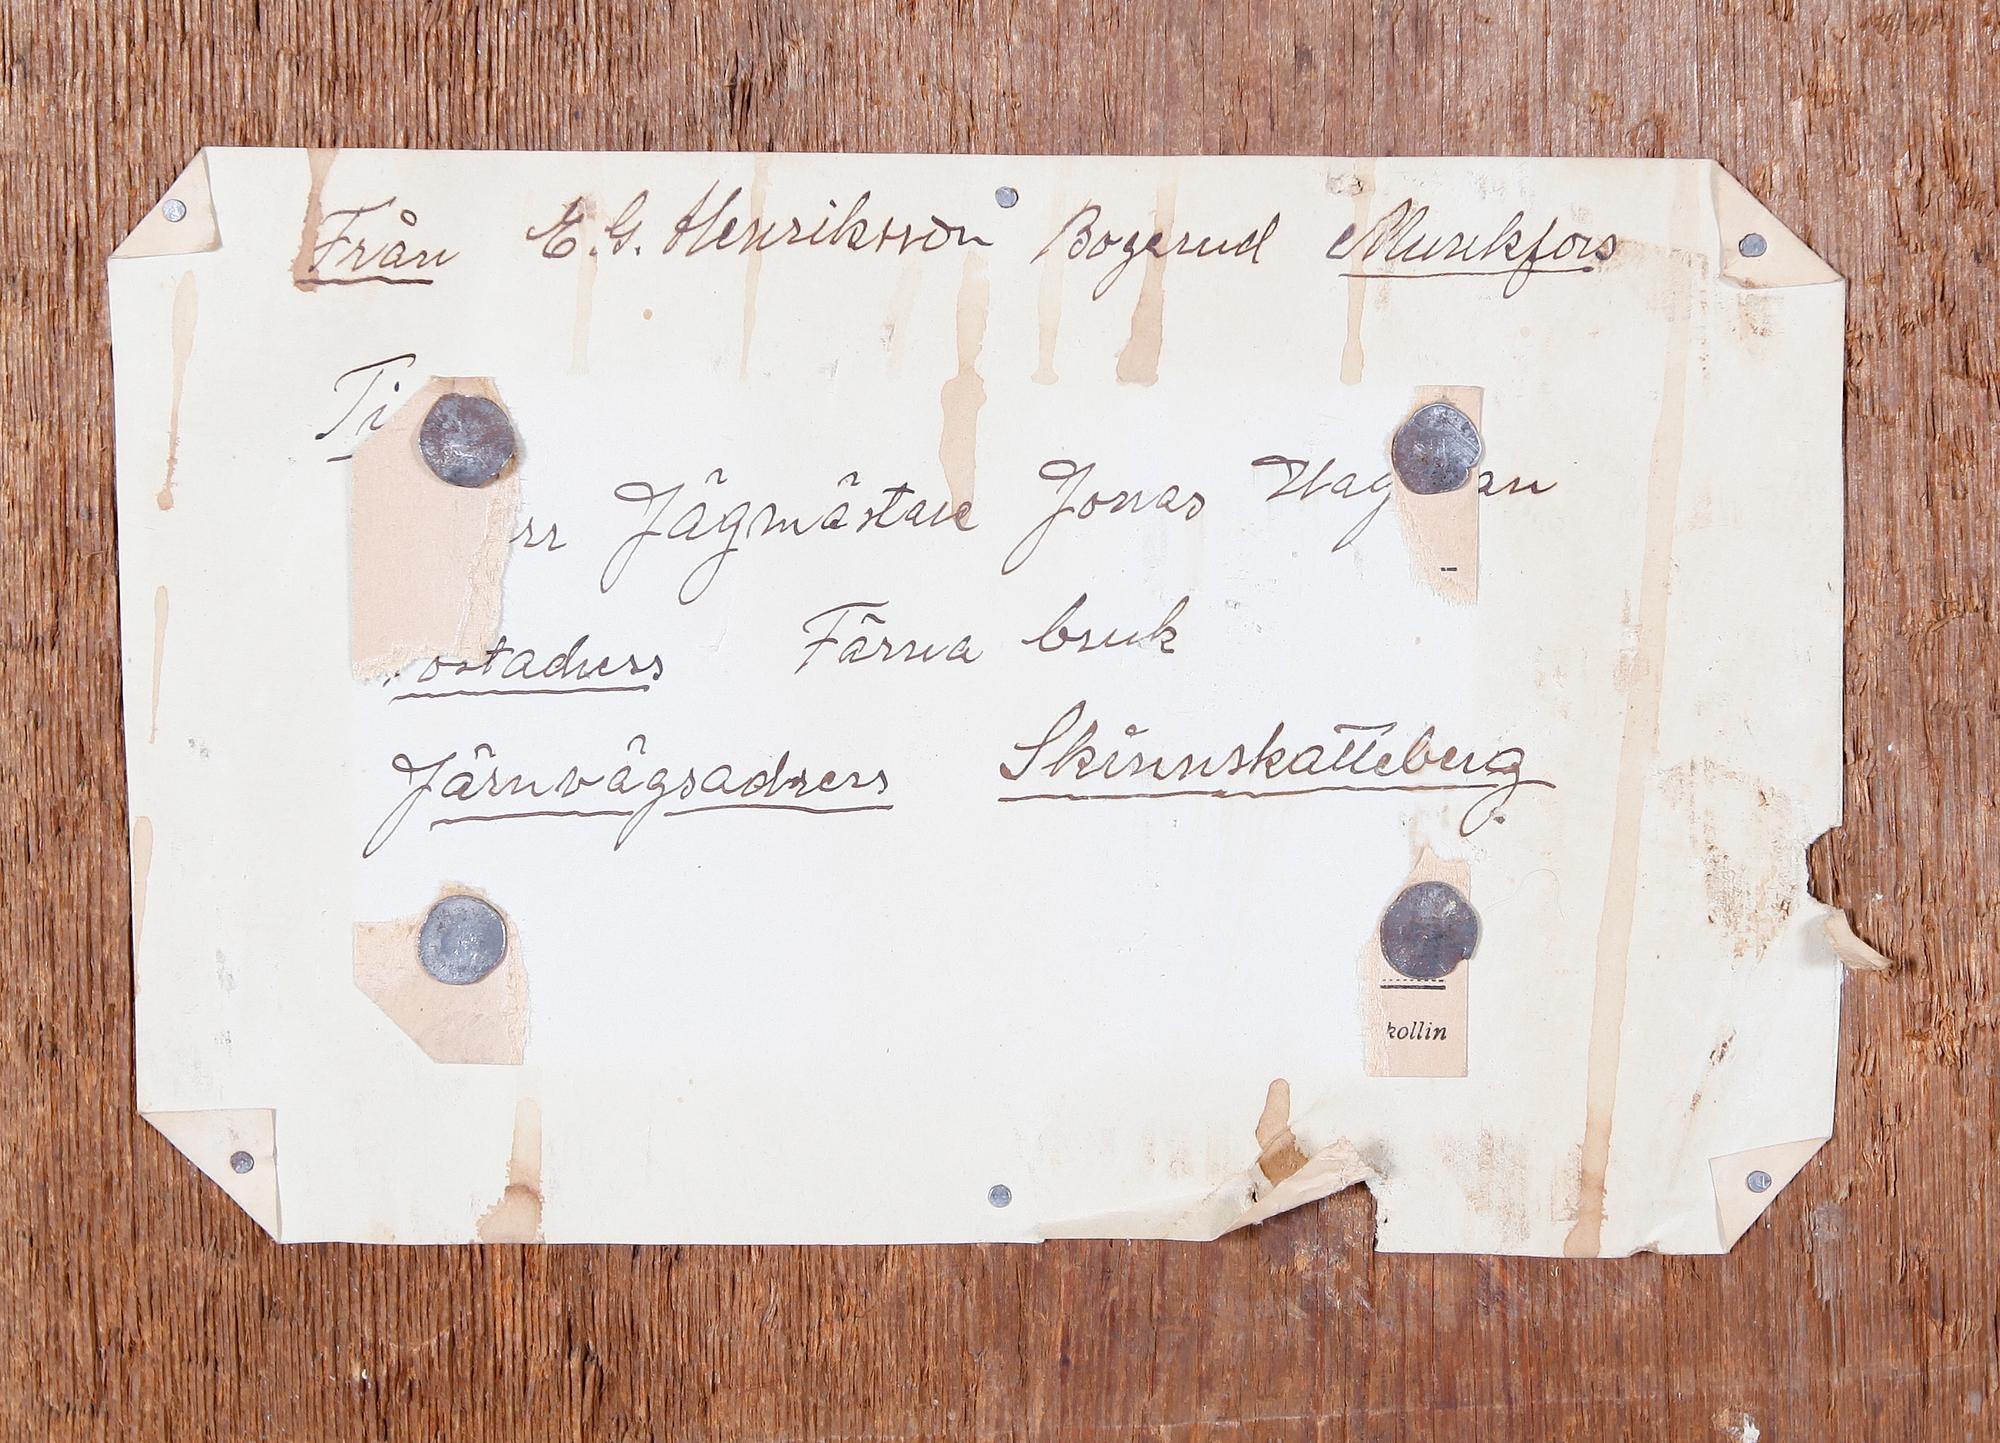 Från E. G. Henriksson Bogerud Munkfors
Ti
rr Jägmästare Jonas Hag an
ostadress Färna bruk
Järnvägsadress Skinnskatteberg
kollin